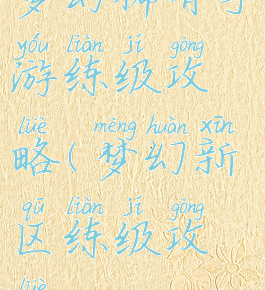 梦幻神谕手
yóu liàn jí gōng
游练级攻
lüè mèng huàn xīn
略(梦幻新
qū liàn jí gōng
区练级攻
lüè